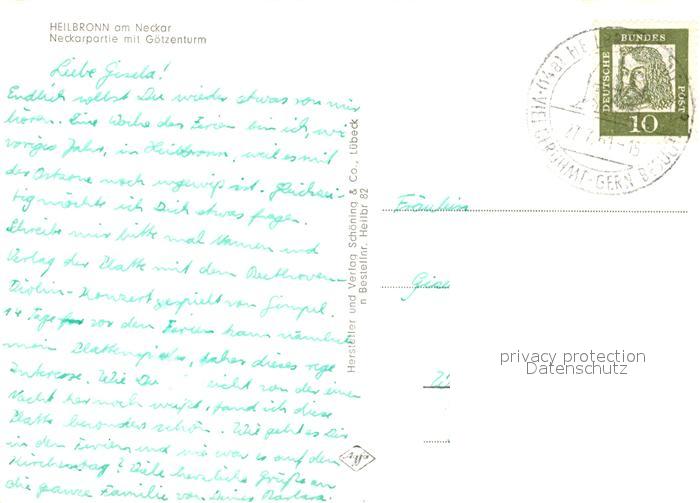 HEILBRONN am Neckar
Neckarpartie mit Götzenturm
Liebe Gisela!
Endlich sollst Du wieder etwas von mir
hören. Eine Woche der Ferien bin ich, wie
voriges Jahr, in Heilbronn, weil es mit
der Ostzone noch ungewiß ist. Gleichzei-
tig möchte ich Dich etwas fragen.
Schreibe mir bitte mal Namen und
Verlag der Platte mit dem Beethoven-
Violin-Konzert gespielt von Gimpel.
14 Tage vor den Ferien kam nämlich
mein Plattenspieler, daher dieses rege
Interesse. Wie Du nicht von der einen
Nacht her noch weißt, fand ich diese
Platte besonders schön. Wie geht es Dir
in den Ferien und wie war es auf dem
Kirchentag? Viele herzliche Grüße an
die ganze Familie von Deiner Barbara.
Hersteller und Verlag Schöning & Co., Lübeck
n Bestellnr. Heilbr 82
DEUTSCHE BUNDES POST
10
(14a) HEILBRONN
VIEL GERÜHMT-GERN BESUCHT
Fräulein
Gise
privacy protection
Datenschutz